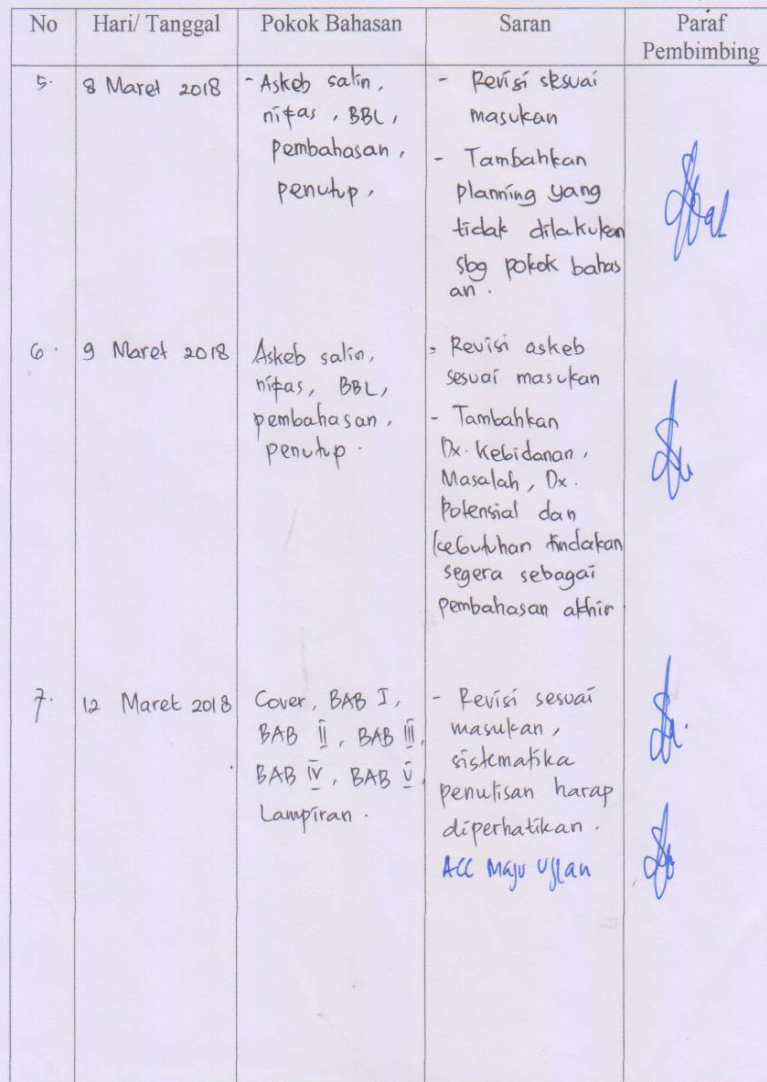 No Hari/ Tanggal Pokok Bahasan Saran Paraf
Pembimbing
5. 8 Maret 2018 - Askeb salin,
nifas, BBL,
pembahasan,
penutup.
- Revisi sesuai
masukan
- Tambahkan
planning yang
tidak dilakukan
sbg pokok bahas
an.
6. 9 Maret 2018 Askeb salin,
nifas, BBL,
pembahasan,
penutup.
- Revisi askeb
sesuai masukan
- Tambahkan
Dx. Kebidanan,
Masalah, Dx.
Potensial dan
kebutuhan tindakan
segera sebagai
pembahasan akhir
7. 12 Maret 2018 Cover, BAB I,
BAB II, BAB III,
BAB IV, BAB V,
Lampiran.
- Revisi sesuai
masukan,
sistematika
penulisan harap
diperhatikan.
ACC Maju Ujian